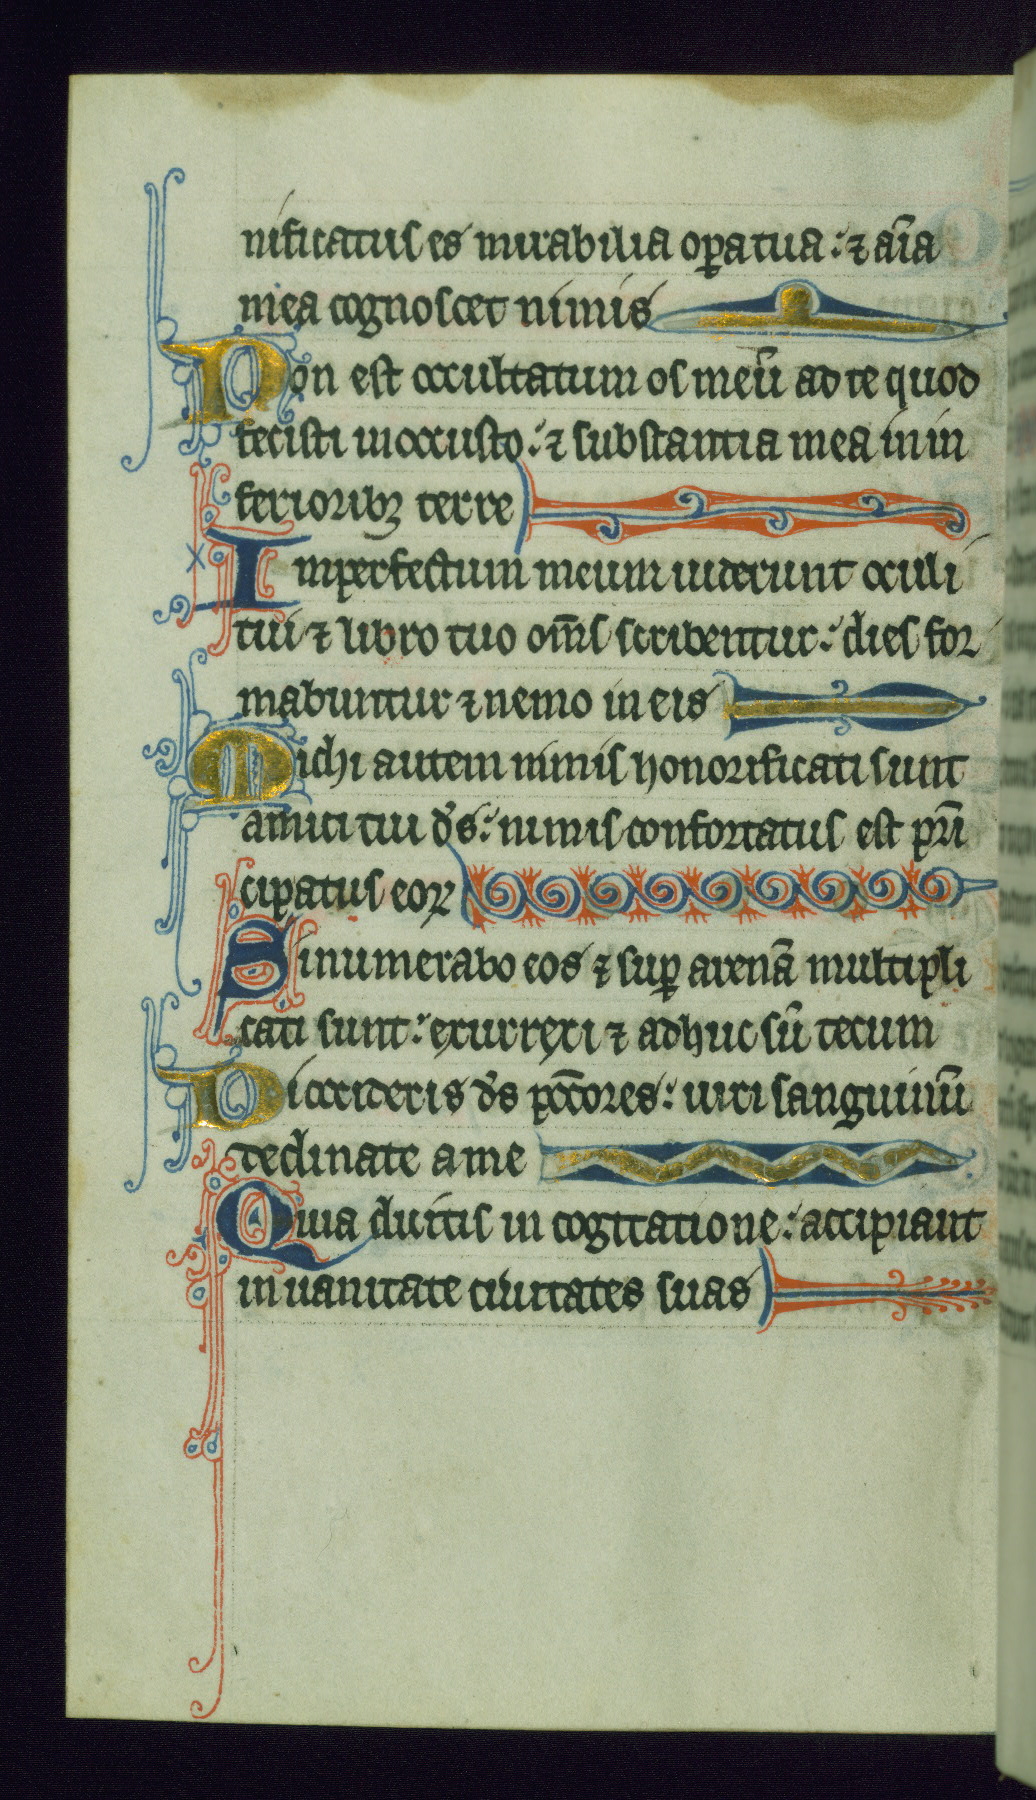 nificatus es mirabilia opatua : ⁊ aīa
mea cognoscet nimis
Non est occultatum os meū ad te quod
fecisti in occusto : ⁊ substantia mea in in
feriorib; terre
Imperfectum meum uiderunt oculi
tui ⁊ libro tuo om̅s scribentur : dies for
mabuntur ⁊ nemo in eis
Michi autem nimis honorificati sunt
amici tui d̅s : nimis confortatus est p̅ri̅
cipatus eoꝝ
Dinumerabo eos ⁊ suꝑ arenā multipli
cati sunt : exurrexi ⁊ adhuc sū tecum
Si occideris d̅s pc̅cores : uiri sanguinū
declinate a me
Quia dicitis in cogitatione : accipiant
in uanitate ciuitates suas